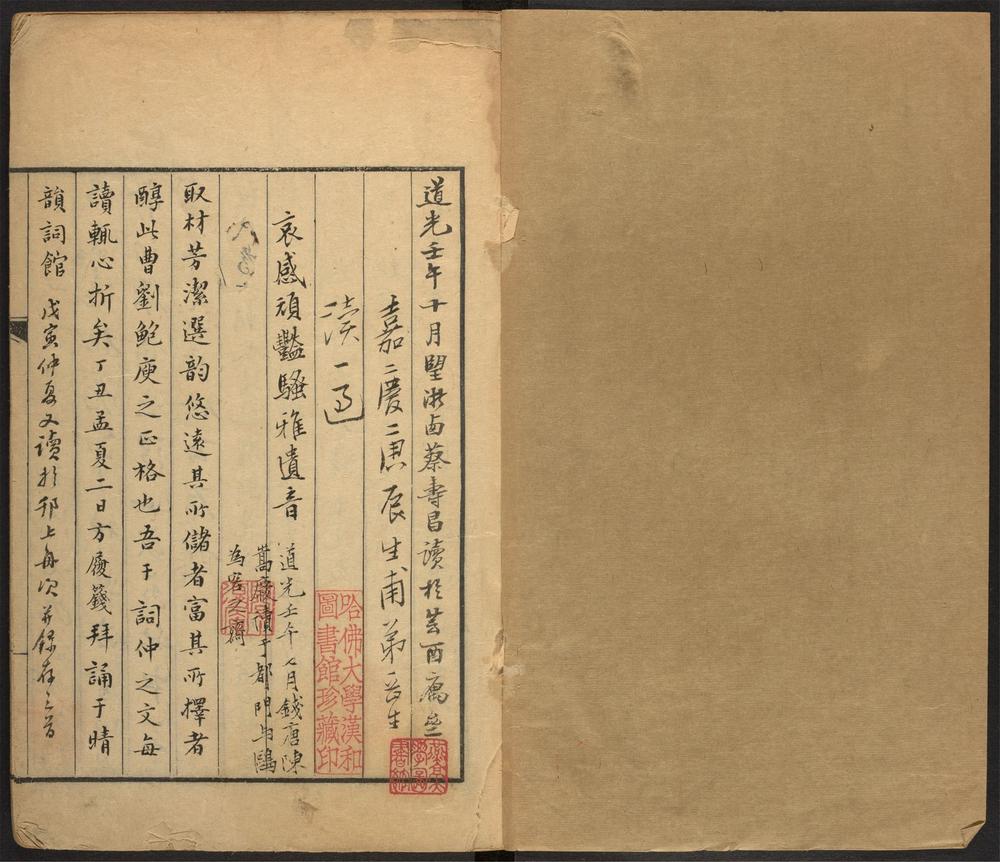 道光壬午十月望浙西蔡壽昌讀於芸酉寓
嘉慶庚辰生甫弟
讀一過
哀感頑豔騷雅遺音
道光壬午七月錢唐陳
嵩慶讀于都門與鷗
為客之齋
取材芳潔選韵悠遠其所儲者富其所擇者
醇此曹劉鮑庾之正格也吾于詞仲之文每
讀輒心折矣丁丑孟夏二日方履籛拜誦于晴
韻詞館
戊寅仲夏又讀於邗上舟次并錄存三首
哈佛大學漢和
圖書館珍藏印